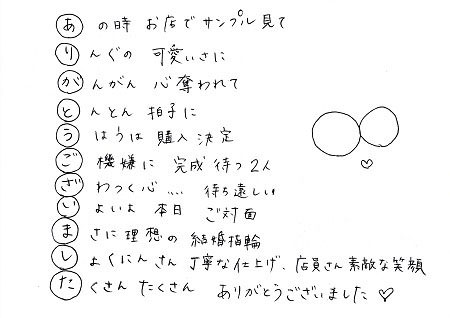 あの時 お店でサンプル見て
りんぐの 可愛いさに
がんがん 心奪われて
とんとん 拍子に
うはうは 購入決定
ご機嫌に 完成待つ2人
ざわつく心…. 待ち遠しい
いよいよ 本日 ご対面
まさに理想の 結婚指輪
しょくにんさん丁寧な仕上げ、店員さん素敵な笑顔
たくさん たくさん ありがとうございました♡